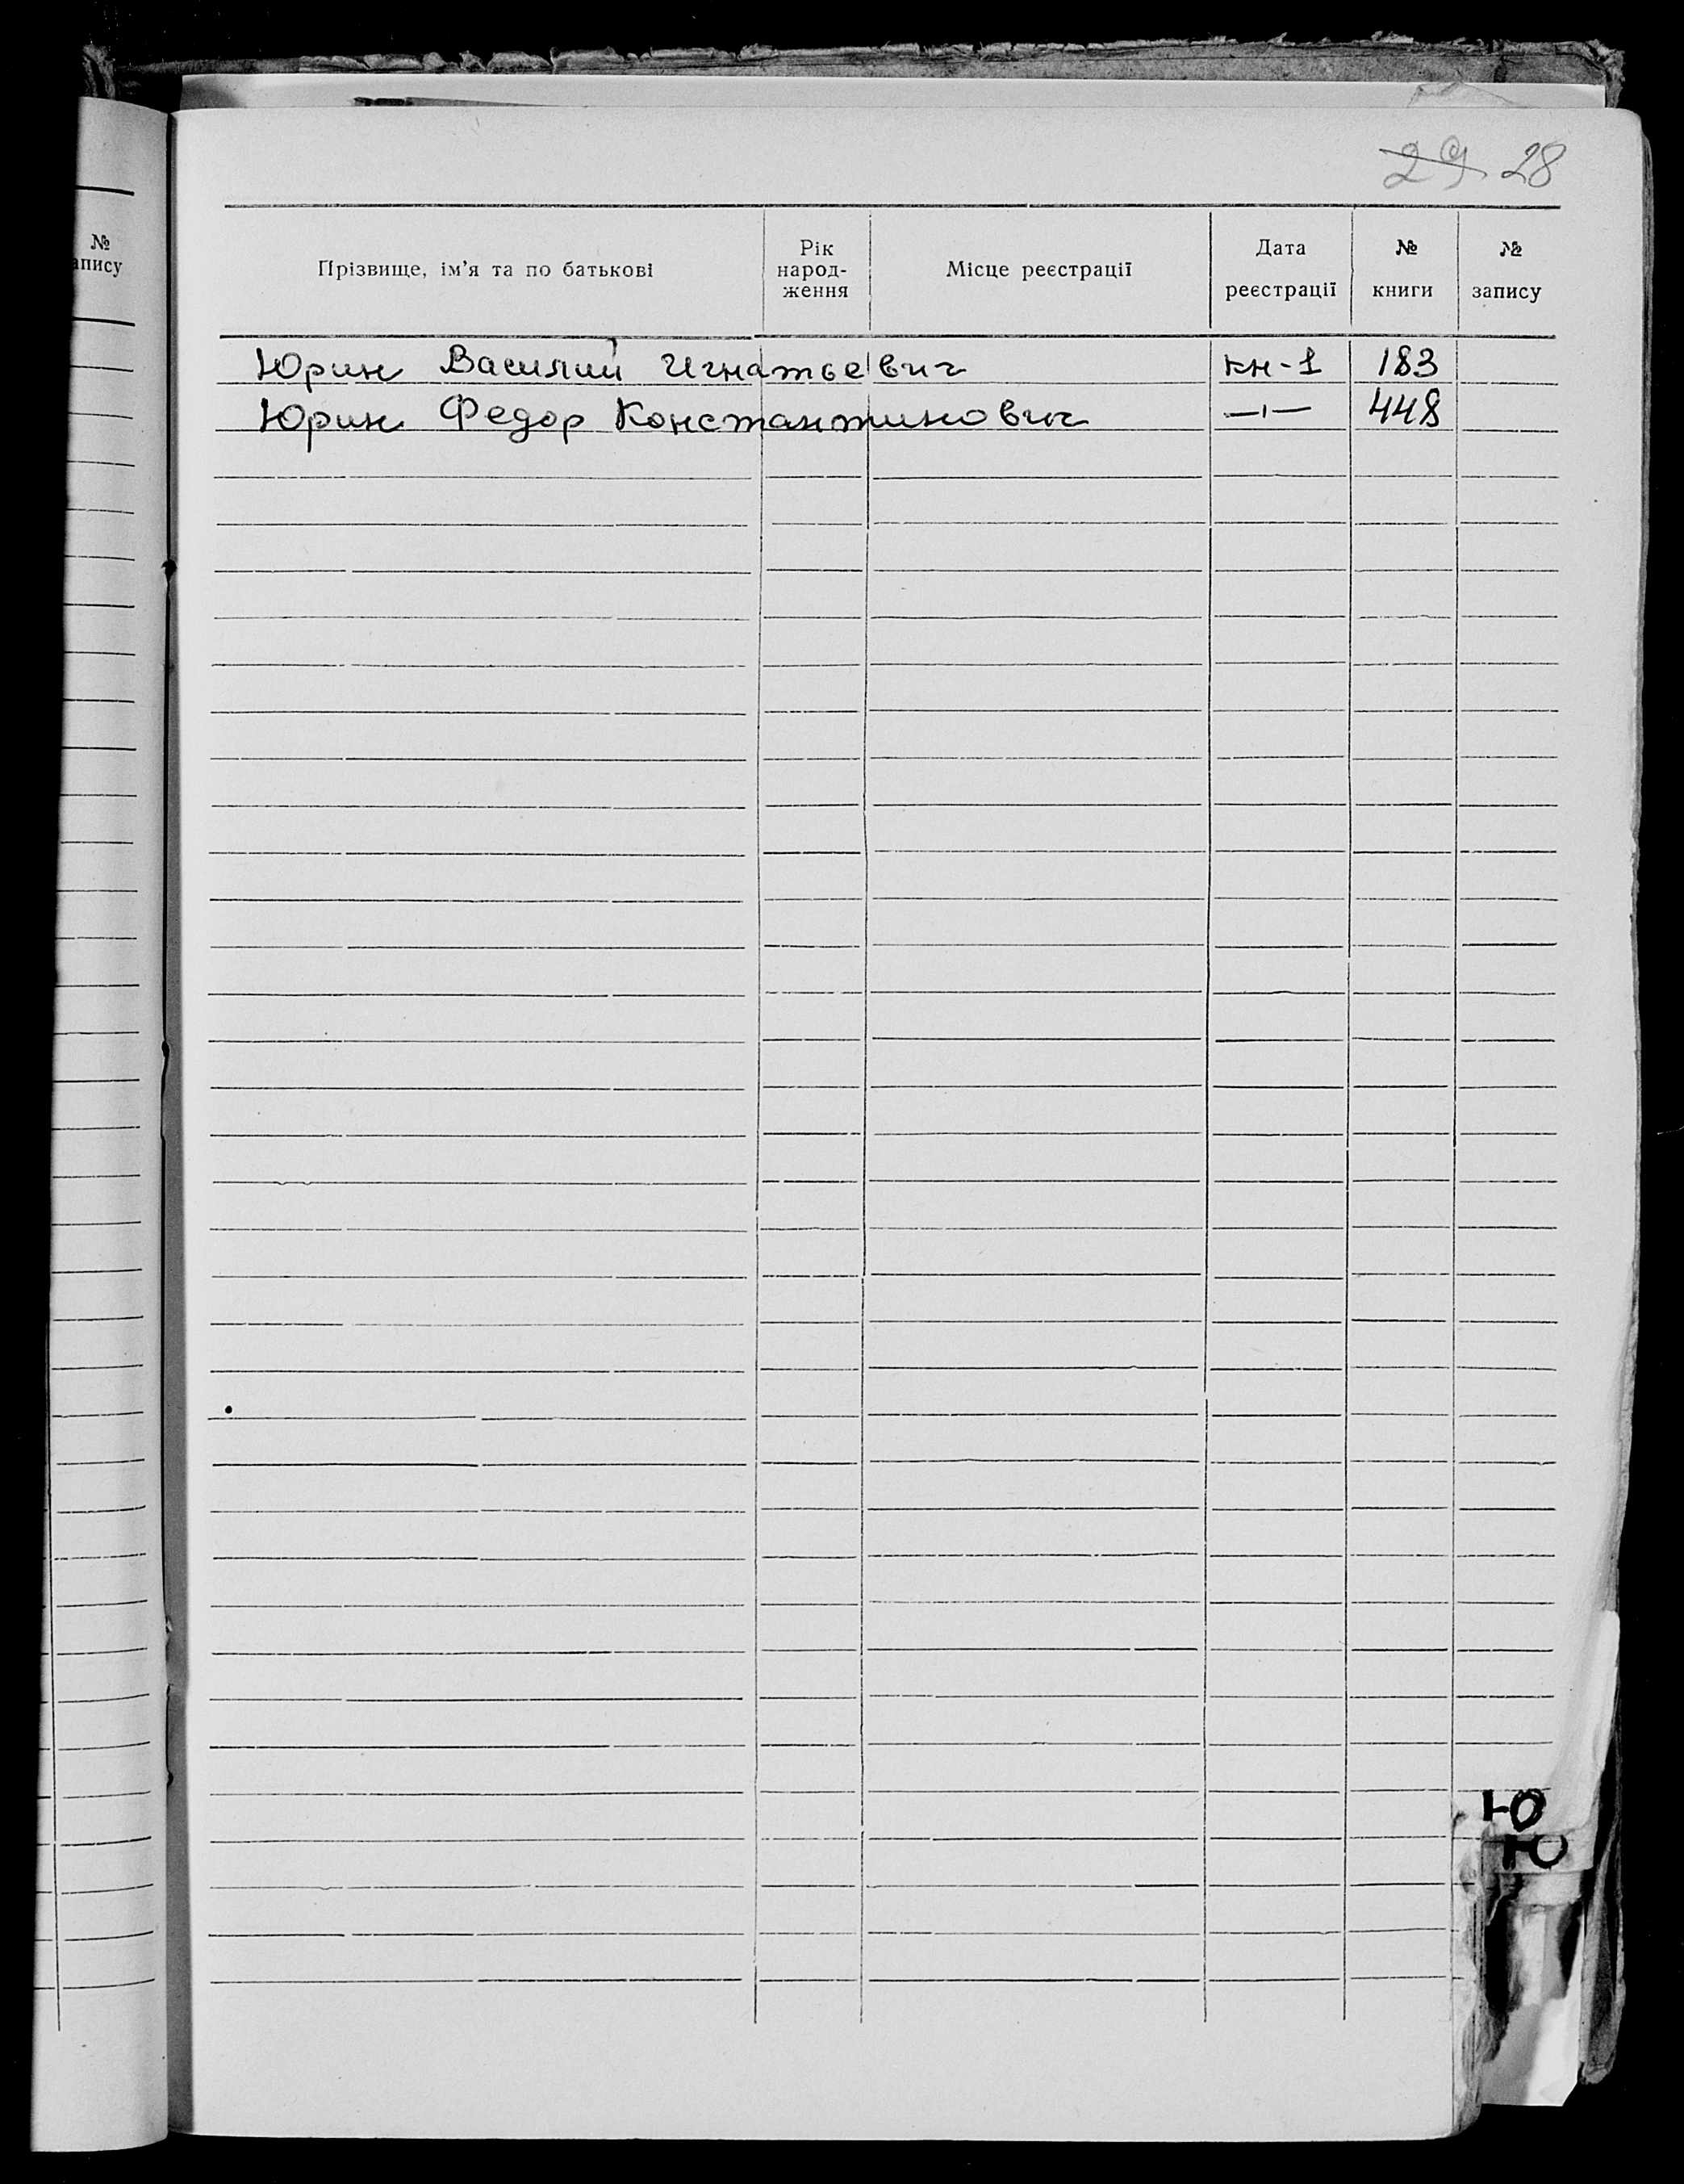 29 28
№
апису
Прізвище, ім'я та по батькові
Рік
народ-
ження
Місце реєстрації
Дата
реєстрації
№
книги
№
запису
Юрин Василий Игнатьевич кн-1 183
Юрин Федор Константинович —ı— 448
Ю
Ю